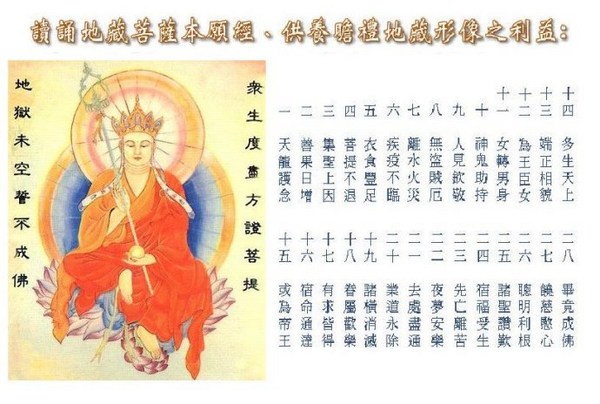 讀誦地藏菩薩本願經、供養瞻禮地藏形像之利益:
衆生度盡方證菩提
地獄未空誓不成佛
一 天龍護念
二 善果日增
三 集聖上因
四 菩提不退
五 衣食豐足
六 疾疫不臨
七 離水火災
八 無盜賊厄
九 人見欽敬
十 神鬼助持
十一 女轉男身
十二 為王臣女
十三 端正相貌
十四 多生天上
十五 或為帝王
十六 宿命通達
十七 有求皆得
十八 眷屬歡樂
十九 諸橫消滅
二十 業道永除
二一 去處盡通
二二 夜夢安樂
二三 先亡離苦
二四 宿福受生
二五 諸聖讚歎
二六 聰明利根
二七 饒慈愍心
二八 畢竟成佛